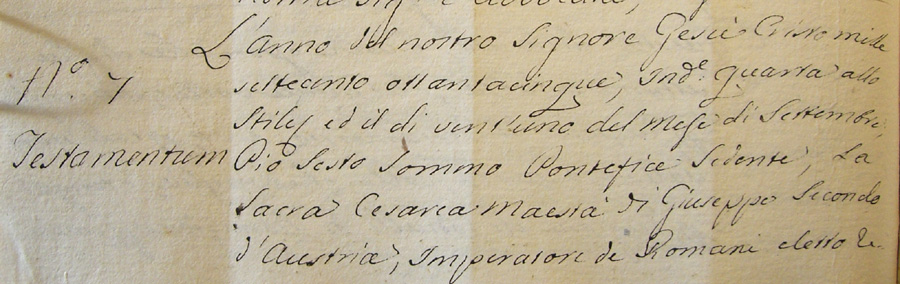 L'anno del nostro Signore Gesù Cristo mille
N.º 7
settecento ottantacinque, Ind.e quarta allo
Stile, ed il dì vent'uno del Mese di Settembre,
Testamentum
Pio Sesto Sommo Pontefice Sedente, La
Sacra Cesarea Maestà di Giuseppe Secondo
d'Austria, Imperatore de Romani eletto